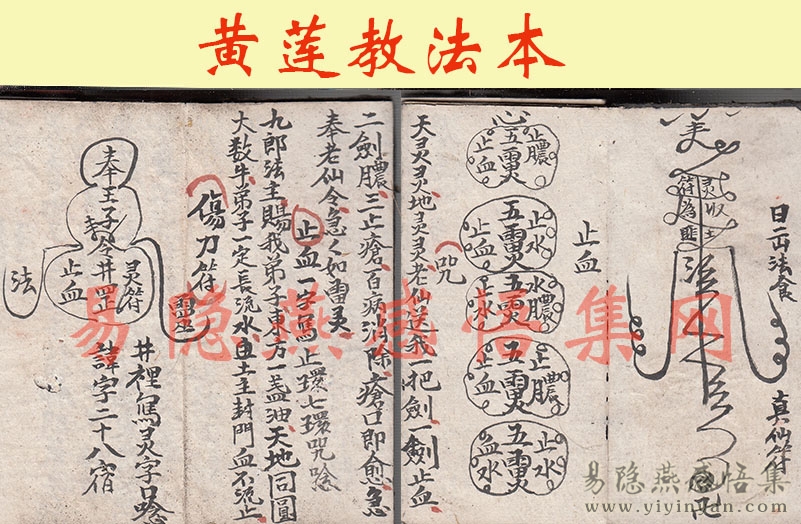 黄莲教法本
真仙符
止血
止膿
五雷
止血
止水
五雷
止血
水膿
五雷
止水
止膿
五雷
止血
止水
五雷
血水
咒
天灵灵地灵灵老仙送我一把劍一劍止血
二劍膿三止瘡百病消除瘡口即愈急
奉老仙令急々如雷灵
止血一字寫止環七環咒唸
九郎法主賜我弟子東方一盖油天地同圓
大数牛弟子一定長流水自土主封門血不流止
傷力符
奉王子令井罡
灵符
止血
法
井裡寫灵字口唸
諱字二十八宿
易隐燕感悟集网
易隐燕感悟集
www.yiyinyan.com